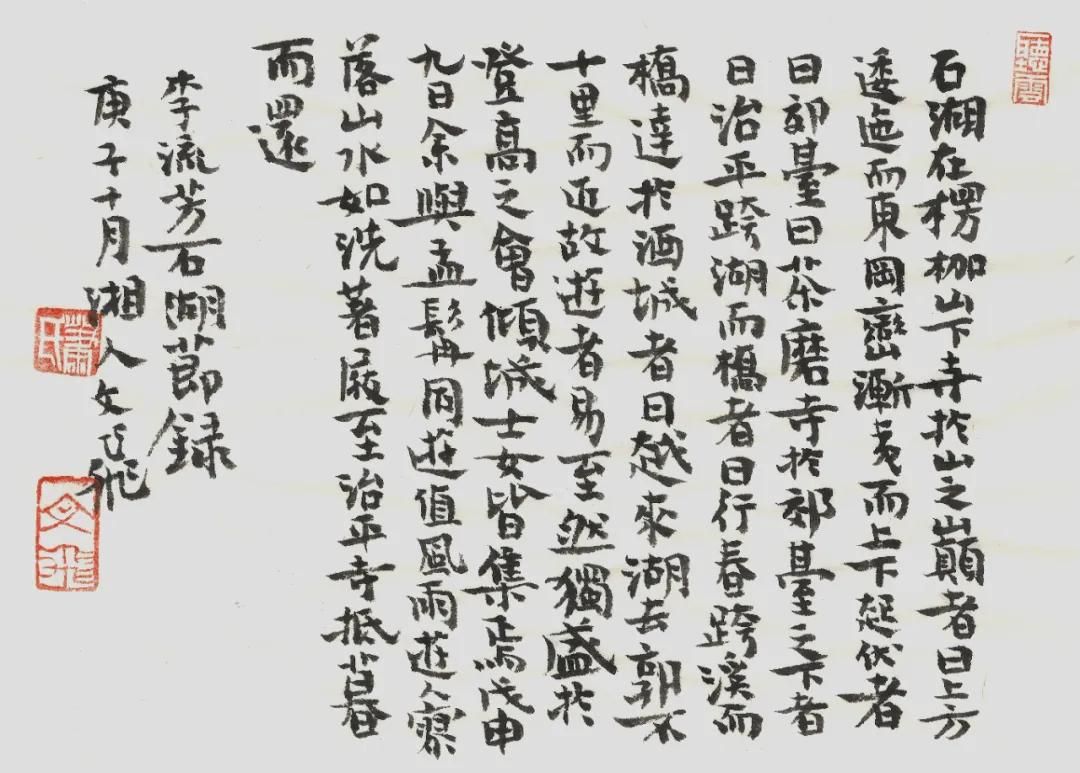 聽雲
石湖在楞枷山下寺於山之巔者曰上方
逶迤而東岡巒漸夷而上下起伏者
曰郊臺曰茶磨寺於郊臺之下者
曰治平跨湖而橋者曰行春跨溪而
橋達於酒城者曰越來湖去郭不
十里而近故遊者易至然獨盛於
登高之會傾城士女皆集焉戊申
九日余與孟髯同遊值風雨遊人寥
落山水如洗著屐至治平寺抵暮
而還
李流芳石湖節録
庚子十月湘人文飛
蕭氏
文飛